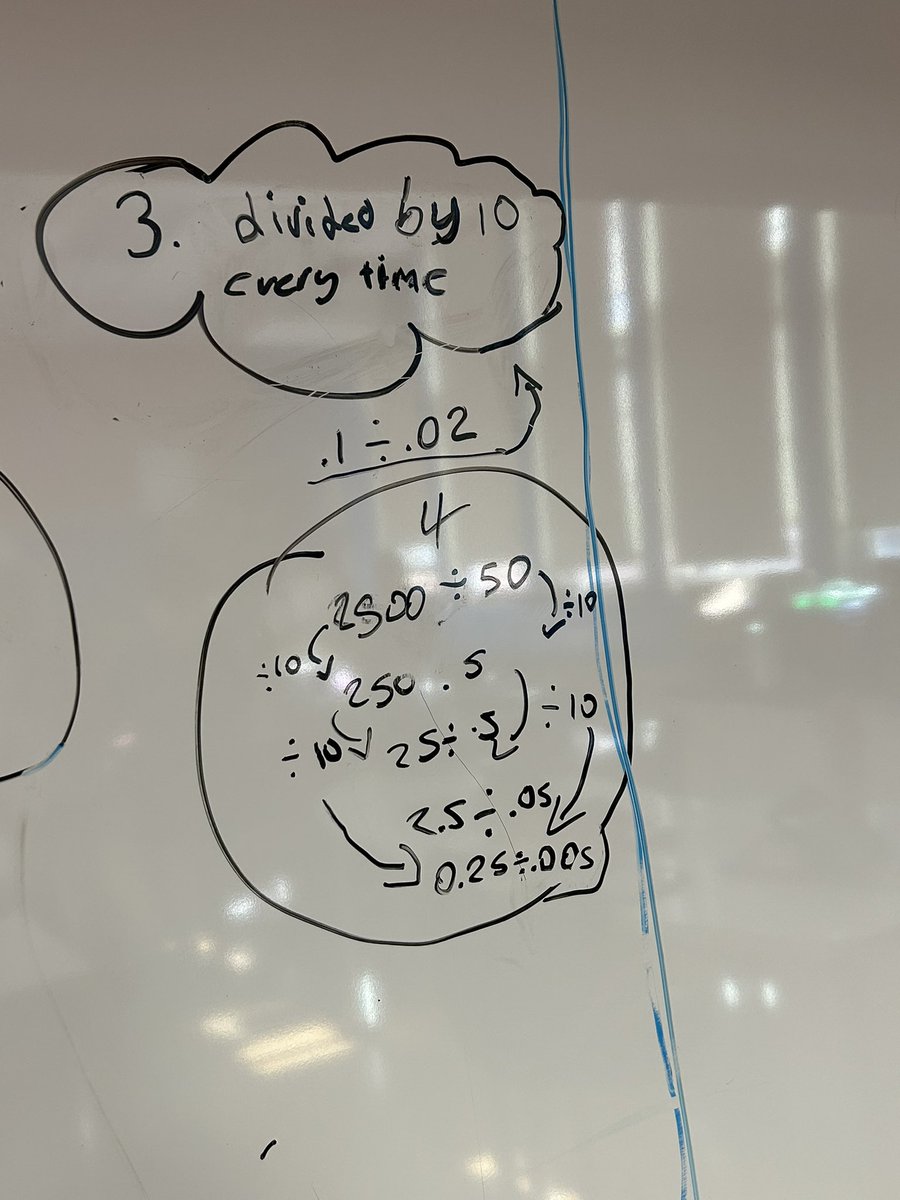 3. divided by 10
every time
.1 ÷ .02
4
2500 ÷ 50
÷10
÷10
250 . 5
÷10
÷10
25 ÷ .5
2.5 ÷ .05
0.25 ÷ .005